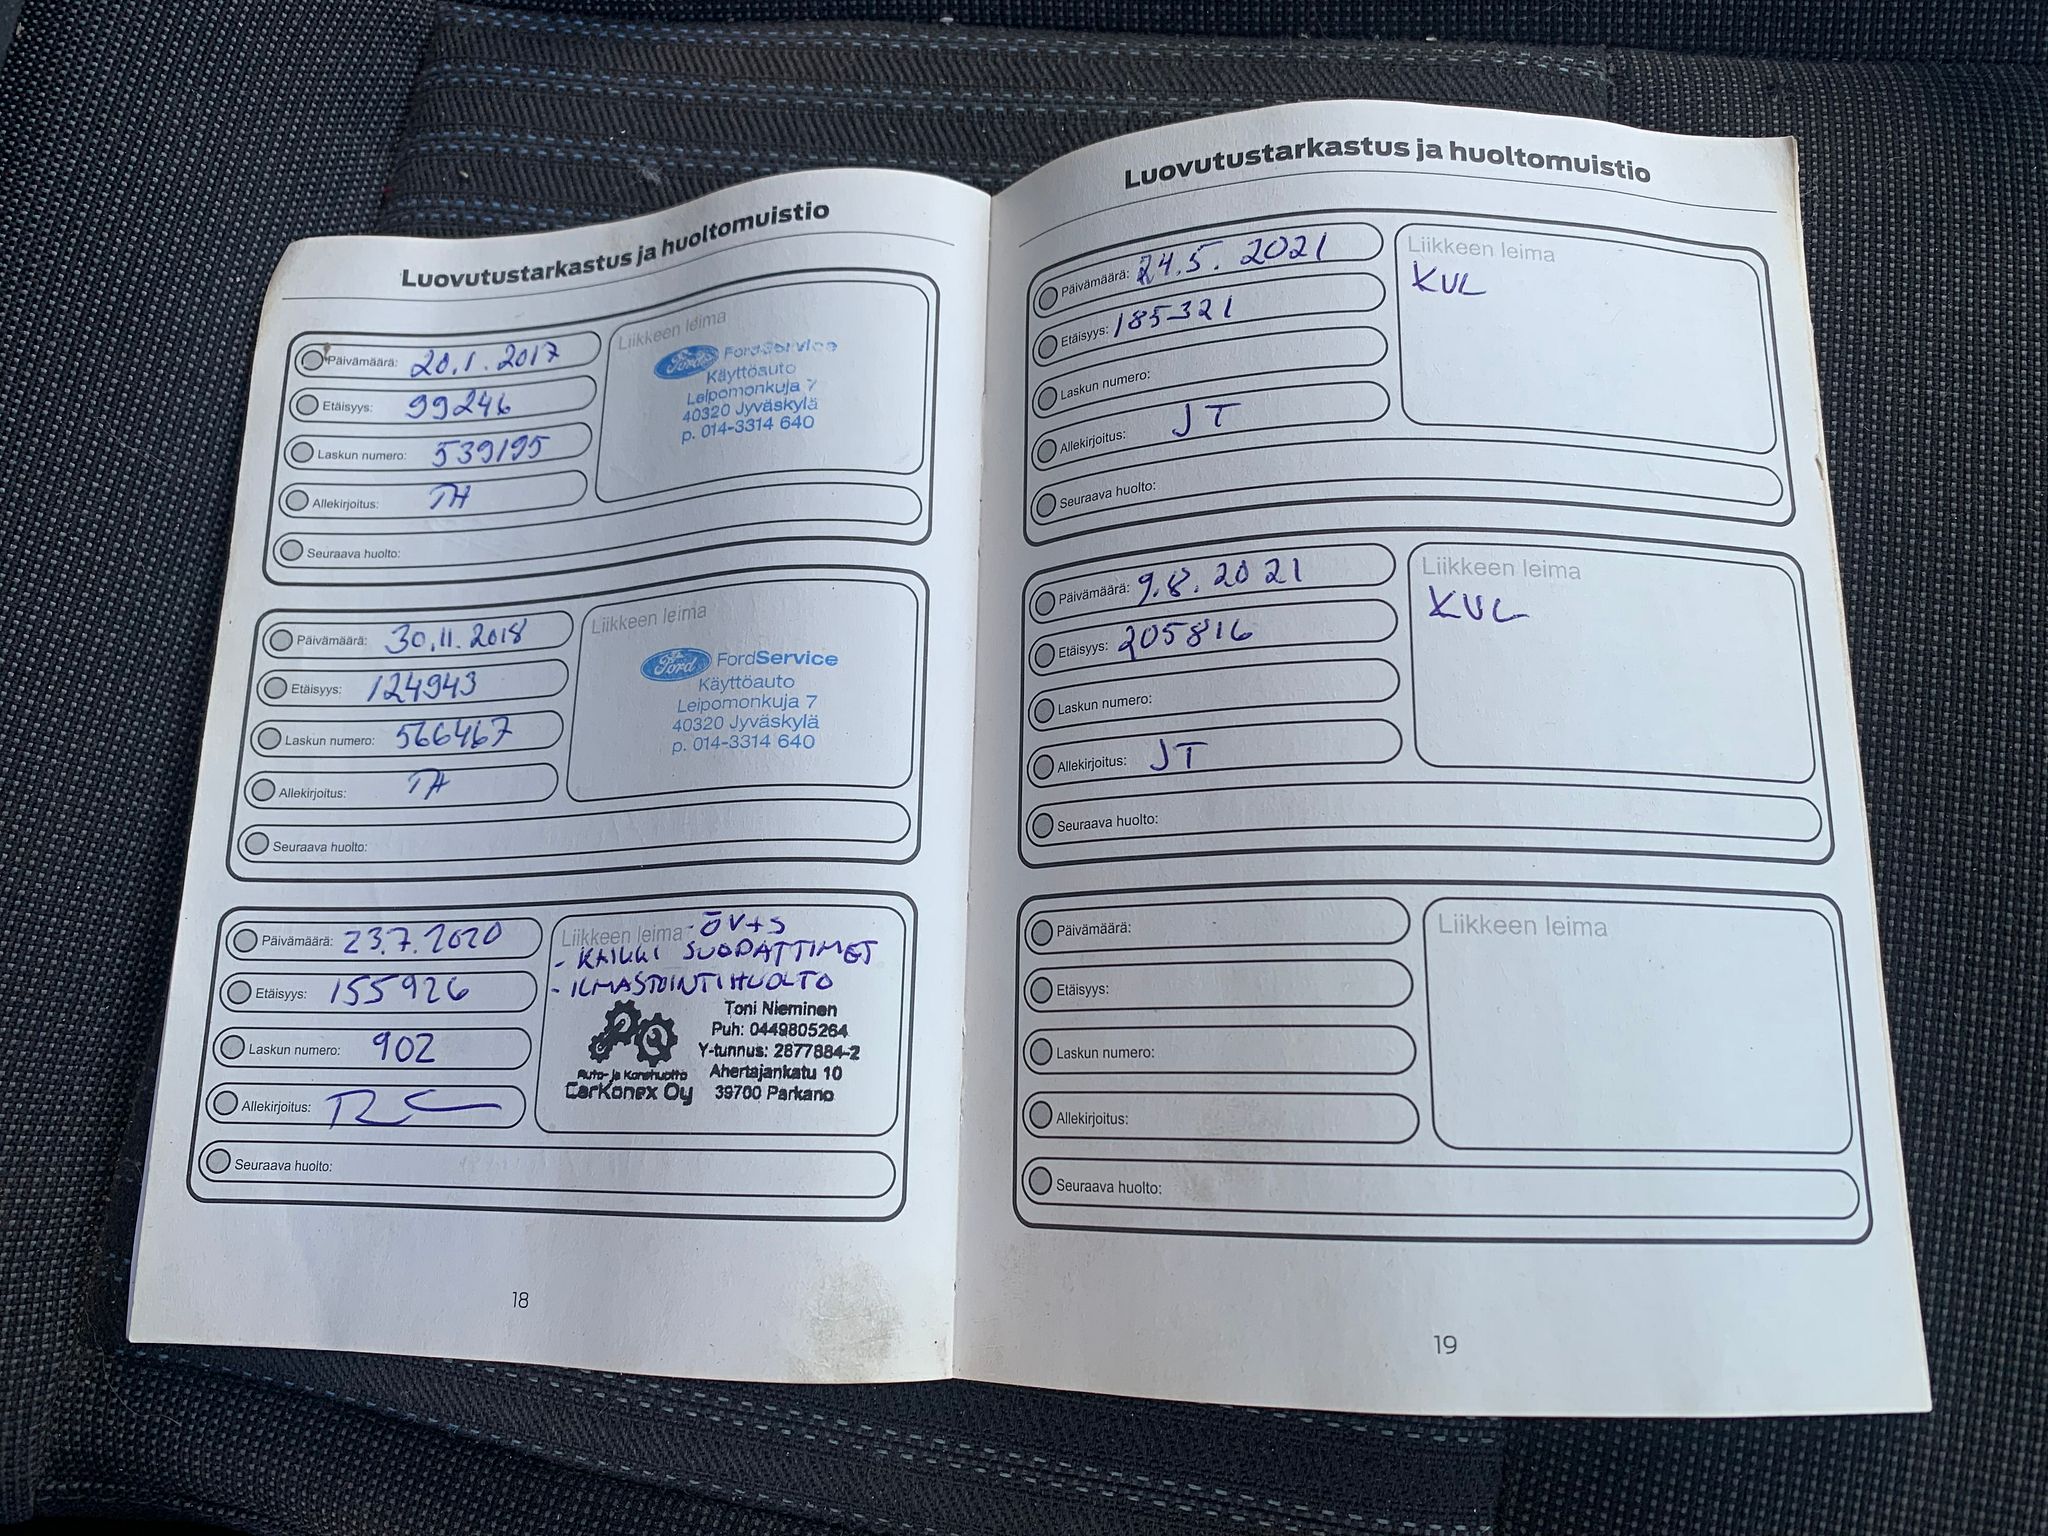 Luovutustarkastus ja huoltomuistio
Päivämäärä: 20.1.2017
Etäisyys: 99246
Laskun numero: 539195
Allekirjoitus: TH
Seuraava huolto:
Liikkeen leima
Ford FordService
Käyttöauto
Leipomonkuja 7
40320 Jyväskylä
p. 014-3314 640
Päivämäärä: 30.11.2018
Etäisyys: 124943
Laskun numero: 566467
Allekirjoitus: TH
Seuraava huolto:
Liikkeen leima
Ford FordService
Käyttöauto
Leipomonkuja 7
40320 Jyväskylä
p. 014-3314 640
Päivämäärä: 23.7.2020
Etäisyys: 155926
Laskun numero: 902
Allekirjoitus:
Seuraava huolto:
Liikkeen leima - ÖV+S
- KAIKKI SUODATTIMET
- ILMASTOINTIHUOLTO
Toni Nieminen
Puh: 0449805264
Y-tunnus: 2877884-2
Ahertajankatu 10
39700 Parkano
Auto- ja Konehuolto
CarKonex Oy
18
Luovutustarkastus ja huoltomuistio
Päivämäärä: 24.5.2021
Etäisyys: 185321
Laskun numero:
Allekirjoitus: JT
Seuraava huolto:
Liikkeen leima
KVL
Päivämäärä: 9.8.2021
Etäisyys: 205816
Laskun numero:
Allekirjoitus: JT
Seuraava huolto:
Liikkeen leima
KVL
Päivämäärä:
Etäisyys:
Laskun numero:
Allekirjoitus:
Seuraava huolto:
Liikkeen leima
19